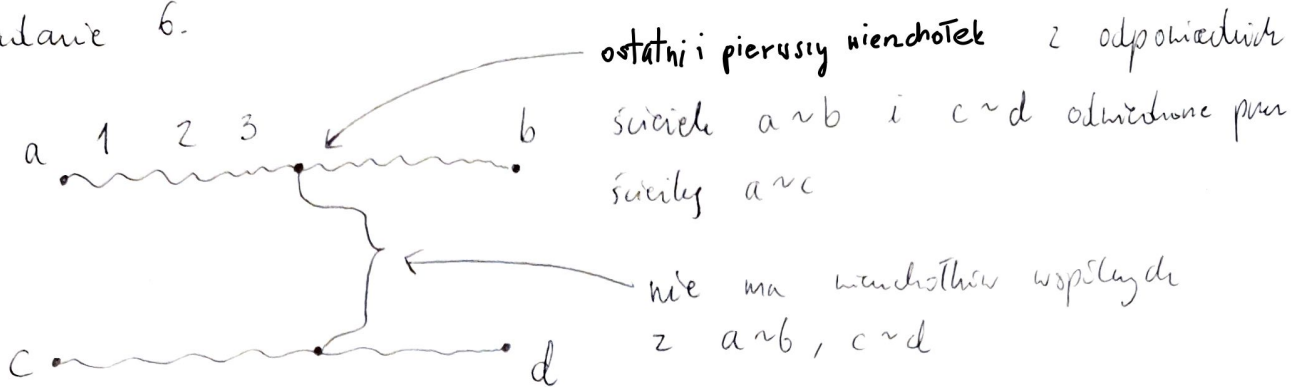 adanie 6.
ostatni i pierwszy wierzchołek z odpowiednich
ścieżek a ~ b i c ~ d odwiedzone przez
ścieżkę a ~ c
a 1 2 3 b
nie ma wierzchołków wspólnych
z a ~ b , c ~ d
c d